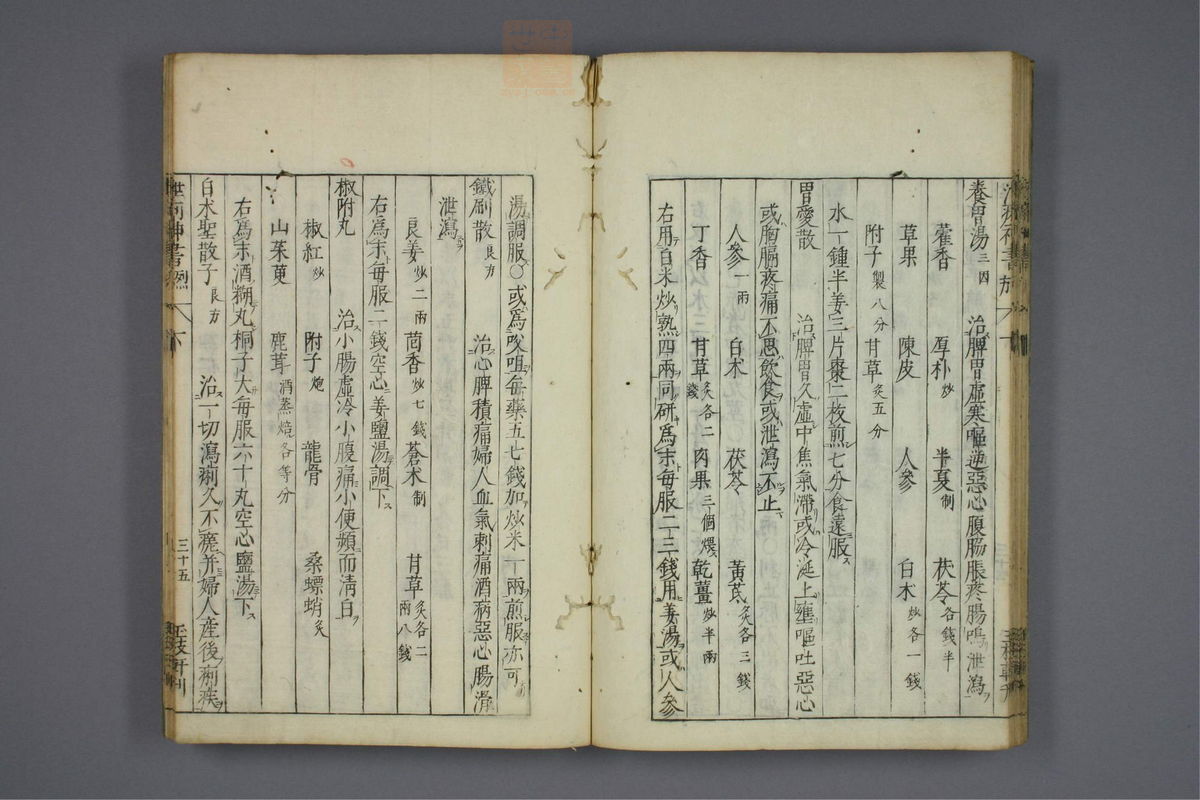 養胃湯三因　治脾胃虛寒嘔逆惡心腹脇脹疼腸鳴泄瀉
藿香　厚朴炒　半夏制　茯苓各錢半
草果　陳皮　人參　白朮炒各一錢
附子製八分　甘草炙五分
水一鍾半姜三片棗二枚煎七分食遠服
胃愛散　治脾胃久虛中焦氣滯或冷涎上壅嘔吐惡心
或胸膈疼痛不思飲食或泄瀉不止
人參一兩　白朮　茯苓　黃芪炙各三錢
丁香　甘草炙各二錢　肉果三個煨　乾薑炒半兩
右用白米炒熟四兩同研爲末每服二三錢用姜湯或人參
湯調服〇或爲㕮咀每藥五七錢加炒米一兩煎服亦可
鐵刷散良方　治心脾積痛婦人血氣刺痛酒病惡心腸滑
泄瀉
良姜炒二兩　茴香炒七錢　蒼朮制　甘草炙各二兩八錢
右爲末每服二錢空心姜鹽湯調下
椒附丸　治小腸虛冷小腹痛小便頻而清白
椒紅炒　附子炮　龍骨　桑螵蛸炙
山茱萸　鹿茸酒蒸焙各等分
右爲末酒糊丸桐子大每服六十丸空心鹽湯下
白朮聖散子良方　治一切瀉痢久不瘥并婦人産後痢疾
三十五